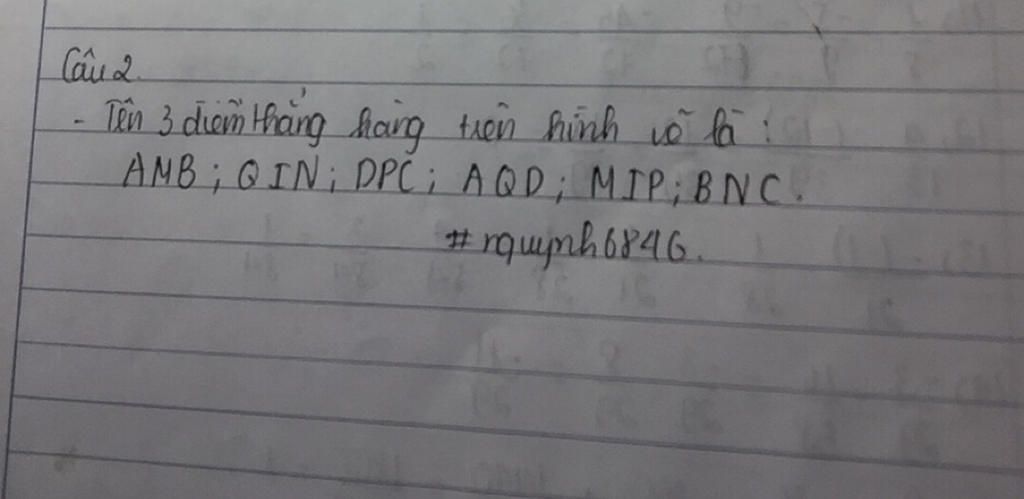 Câu 2.
- Tên 3 điểm thẳng hàng trên hình vẽ là :
AMB ; QIN ; DPC ; AQD ; MIP ; BNC .
# nquynh6846.